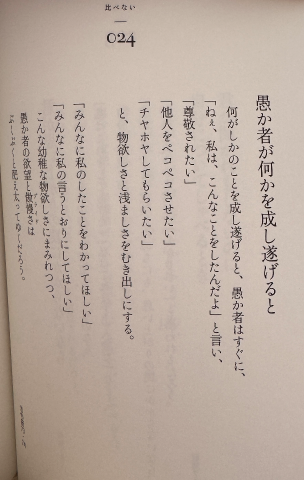 比べない
024
愚か者が何かを成し遂げると
何がしかのことを成し遂げると、愚か者はすぐに、
「ねぇ、私は、こんなことをしたんだよ」と言い、
「尊敬されたい」
「他人をペコペコさせたい」
「チヤホヤしてもらいたい」
と、物欲しさと浅ましさをむき出しにする。
「みんなに私のしたことをわかってほしい」
「みんなに私の言うとおりにしてほしい」
こんな幼稚な物欲しさにまみれつつ、
愚か者の欲望と傲慢さは
ぶくぶくと肥え太ってゆくだろう。